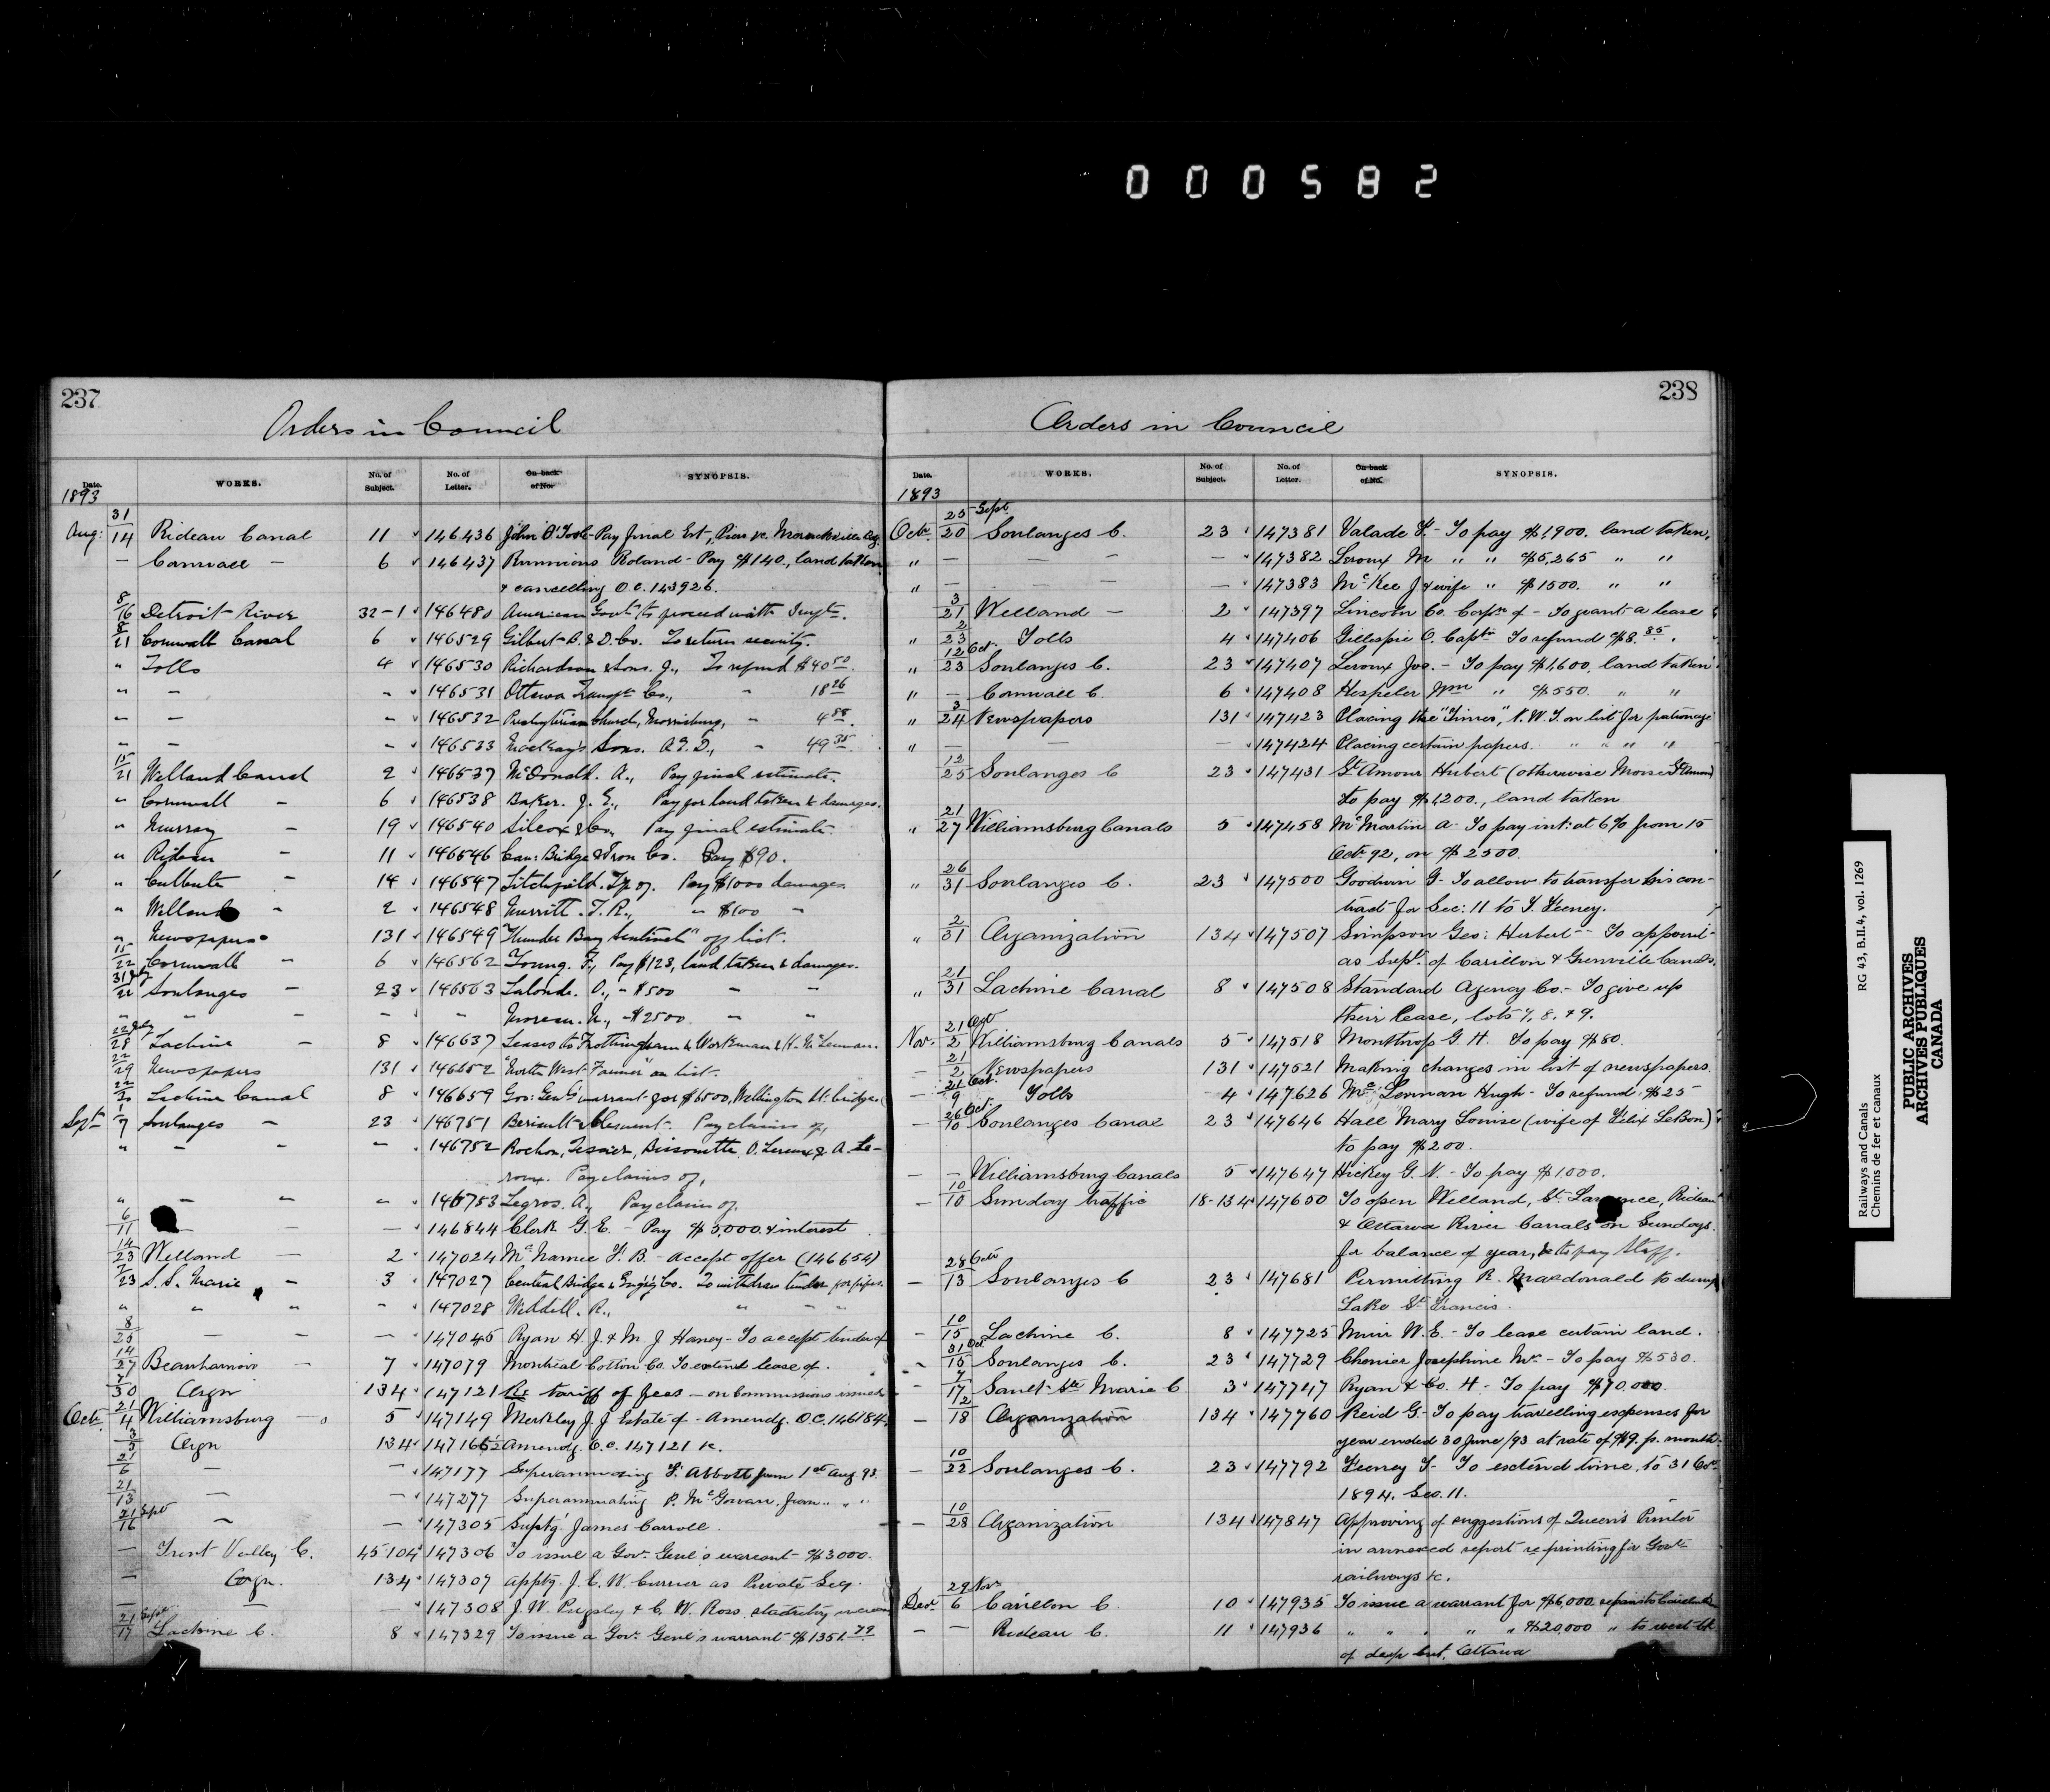 000582
237
Orders in Council
Date. WORKS. No. of Subject. No. of Letter. On back of No. SYNOPSIS.
1893
Aug: 31/14 Rideau Canal 11 146436 John O'Toole - Pay final Est, Pier &c.
— Cornwall — 6 146437 Runnions Roland - Pay $140., land taken
& cancelling O.C. 143926.
8/16 Detroit River 32-1 146480 American Govt. to proceed with
8/21 Cornwall Canal 6 146529 Gilbert & D. Co. To return security.
" Tolls 4 146530 Richardson & Sons. J., To refund $40
" — — 146531 Ottawa Co., — 18 26
" — — 146532 Presbyterian Church, Morrisburg, — 4 88
— — — 146533 Sons. — 49 35
15/21 Welland Canal 2 146537 McDonald. A., Pay final estimate.
" Cornwall — 6 146538 Baker. J. E., Pay for land taken & damages.
" Murray — 19 146540 Silcox & Co., Pay final estimate
" Rideau — 11 146546 Can: Bridge & Iron Co. Pay $90.
" Culbute — 14 146547 Litchfield. Tp of. Pay $1000 damages.
" Welland — 2 146548 Merritt. T. R., " $100 —
" Newspapers 131 146549 "Thunder Bay Sentinel" off list.
15/22 Cornwall — 6 146562 Young. F., Pay $123, land taken & damages.
31 July/22 Soulanges — 23 146563 Lalonde. O., - $500 — —
" " — — — Moreau. N., - $2500 — —
22 July/28 Lachine — 8 146637 Leases to Frothingham & Workman & H. McLennan.
22/29 Newspapers 131 146652 "North West Farmer" on list.
Lachine Canal 8 146659 Gov: Genl's warrant for $6500, Wellington St. bridge.
Sept 1/7 Soulanges — 23 146751 Beriault & Clement. Pay claims of,
" — — — 146752 Rochon, Tessier, Bissonette, O. Leroux & A. Le-
roux. Pay claims of,
" — " — 146753 Legros. A., Pay claim of,
6/11 — — 146844 Clerk G. E. - Pay $3,000 & interest
14/23 Welland — 2 147024 McNamee F. B. - accept offer (146654)
7/23 S. S. Marie — 3 147027 Central Bridge & Engi'g Co. To withdraw tender for pipes.
" " " — 147028 Weddell. R., " — "
8/25 — — — 147045 Ryan H. J. & M. J Haney - To accept tender of
14/27 Beauharnois — 7 147079 Montreal Cotton Co. To extend lease of.
7/30 Orgn 134 147121 Re tariff of fees — on Commissions issued
Oct. 21/4 Williamsburg — 5 147149 Merkley J. J Estate of - Amendg. O.C. 146184
3/5 Orgn 134 Amendg. O.C. 147121 &c.
21/6 — — 147177 Superannuating F. Abbott from 1st Aug 93.
21/13 — — 147277 Superannuating P. McGowan. from " " "
21 Sept/16 — — 147305 Suptg. James Carroll.
— Trent Valley C. 45 104 147306 To issue a Gov. Genl's warrant - $3000.
— Orgn. 134 147307 Apptg. J. E. W. Currier as Private Secy.
— — — 147308 J. W. Pugsley & C. W. Ross. statutory increase
21 Sept/17 Lachine C. 8 147329 To issue a Gov. Genl's warrant $1351.79
238
Orders in Council
Date. WORKS. No. of Subject. No. of Letter. On back of No. SYNOPSIS.
1893
Oct. 25 Sept/20 Soulanges C. 23 147381 Valade F. - To pay $1,900. land taken,
" — — — — 147382 Leroux M " " $5,265 " "
" — — — — 147383 McKee J & wife " $1500. " "
3/21 Welland — 2 147397 Lincoln Co. Corpn of - To grant a lease
" 2/23 Tolls 4 147406 Gillespie C. Captn To refund $8.35.
" 12 Oct./23 Soulanges C. 23 147407 Leroux Jos. - To pay $1,600. land taken
" — Cornwall C. 6 147408 Hespeler Wm " $550. " "
" 3/24 Newspapers 131 147423 Placing the "Times", N.W.T. on list for patronage
" — — — 147424 Placing certain papers. " " " "
12/25 Soulanges C 23 147431 St. Amour Hubert (otherwise Moise St. Amour)
to pay $1,200., land taken
" 21/27 Williamsburg Canals 5 147458 McMartin A - To pay int: at 6% from 15
Oct. 92, on $2500.
" 26/31 Soulanges C. 23 147500 Goodwin G - To allow to transfer his con-
tract for Sec: 11 to T. Feeney.
" 2/31 Organization 134 147507 Simpson Geo: Herbert - To appoint
as Supt. of Carillon & Grenville Canals.
" 21/31 Lachine Canal 8 147508 Standard Agency Co. - To give up
their lease, lots 7, 8, & 9.
Nov. 21 Oct/2 Williamsburg Canals 5 147518 Monthrop G. H. To pay $80.
— 21/2 Newspapers 131 147521 Making changes in list of newspapers.
— 21 Oct./9 Tolls 4 147626 McLennan Hugh - To refund $25
— 26 Oct./10 Soulanges Canal 23 147646 Hall Mary Louise (wife of Felix LeBon)
to pay $200.
— — Williamsburg Canals 5 147647 Hickey G. N. - To pay $1000.
— 10/10 Sunday traffic 18-134 147650 To open Welland, St. Lawrence, Rideau
& Ottawa River Canals on Sundays
for balance of year, & to pay staff.
— 28 Oct/13 Soulanges C 23 147681 Permitting R. Macdonald to dump
Lake St. Francis.
— 10/15 Lachine C. 8 147725 Muir W. E. - To lease certain land.
— 31 Oct/15 Soulanges C. 23 147729 Chenier Josephine Mrs. - To pay $530.
— 7/17 Sault Ste Marie C 3 147747 Ryan & Co. H. - To pay $70.000
— 12/18 Organization 134 147760 Reid G. - To pay travelling expenses for
year ended 30 June/93 at rate of $9. p. month.
— 10/22 Soulanges C. 23 147792 Feeney T - To extend time, to 31 Oct.
1894. Sec. 11.
— 10/28 Organization 134 147847 Approving of suggestions of Queen's Printer
in annexed report re printing for Govt.
railways &c.
Dec. 29 Nov/6 Carillon C. 10 147935 To issue a warrant for $6,000. repairs to
— — Rideau C. 11 147936 " " " " $20,000 " to
of deep cut, Ottawa
Railways and Canals RG 43, B.II.4, vol. 1269
Chemins de fer et canaux
PUBLIC ARCHIVES
ARCHIVES PUBLIQUES
CANADA